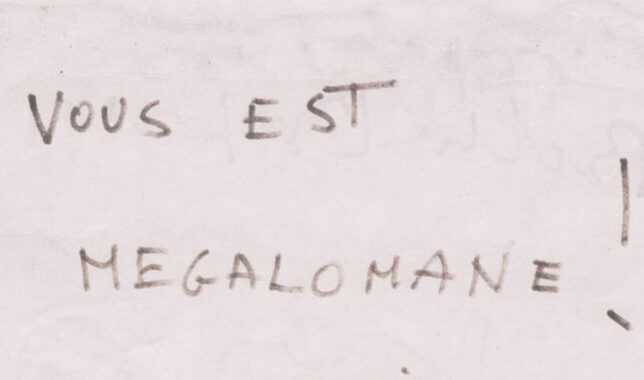 VOUS EST
MEGALOMANE !